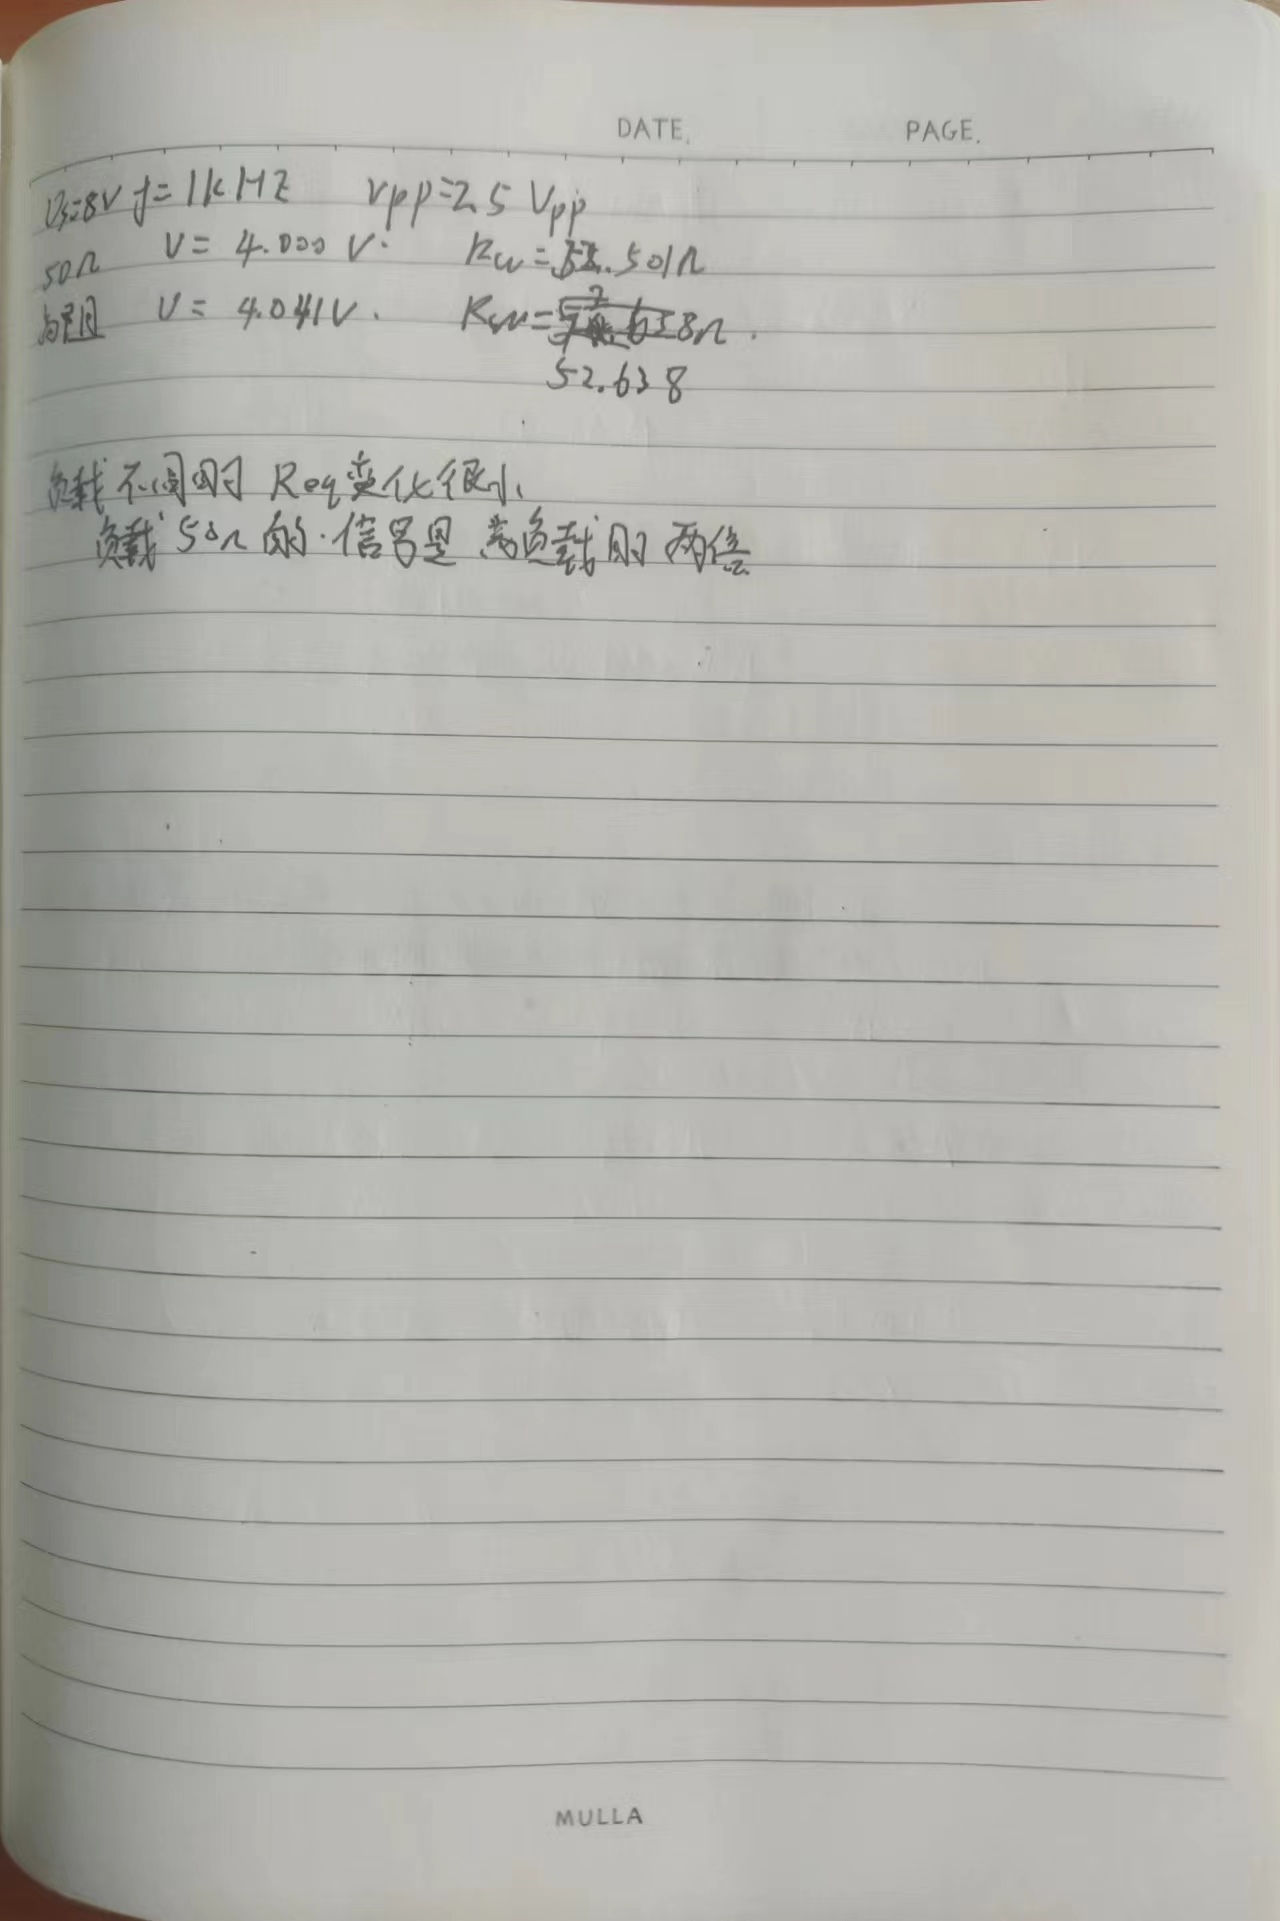 DATE. PAGE.
Us=8V f=1kHz Vpp=2.5 Vpp
50Ω V= 4.000 V. Rw= .501Ω
高阻 V= 4.041V. Rw= 8Ω.
52.638
负载不同时 Req变化很小
负载50Ω的信号是高负载时两倍
MULLA